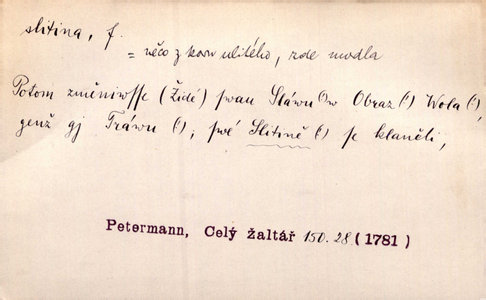 slitina, f.
= něco z kovu ulitého, zde modla
Potom změniwsse (Židé) swau Sláwu (!) w Obraz (!) Wola (!),
genž gj Tráwu (!); své Slitině (!) se klaněli,
Petermann, Celý žaltář 150. 28. (1781)